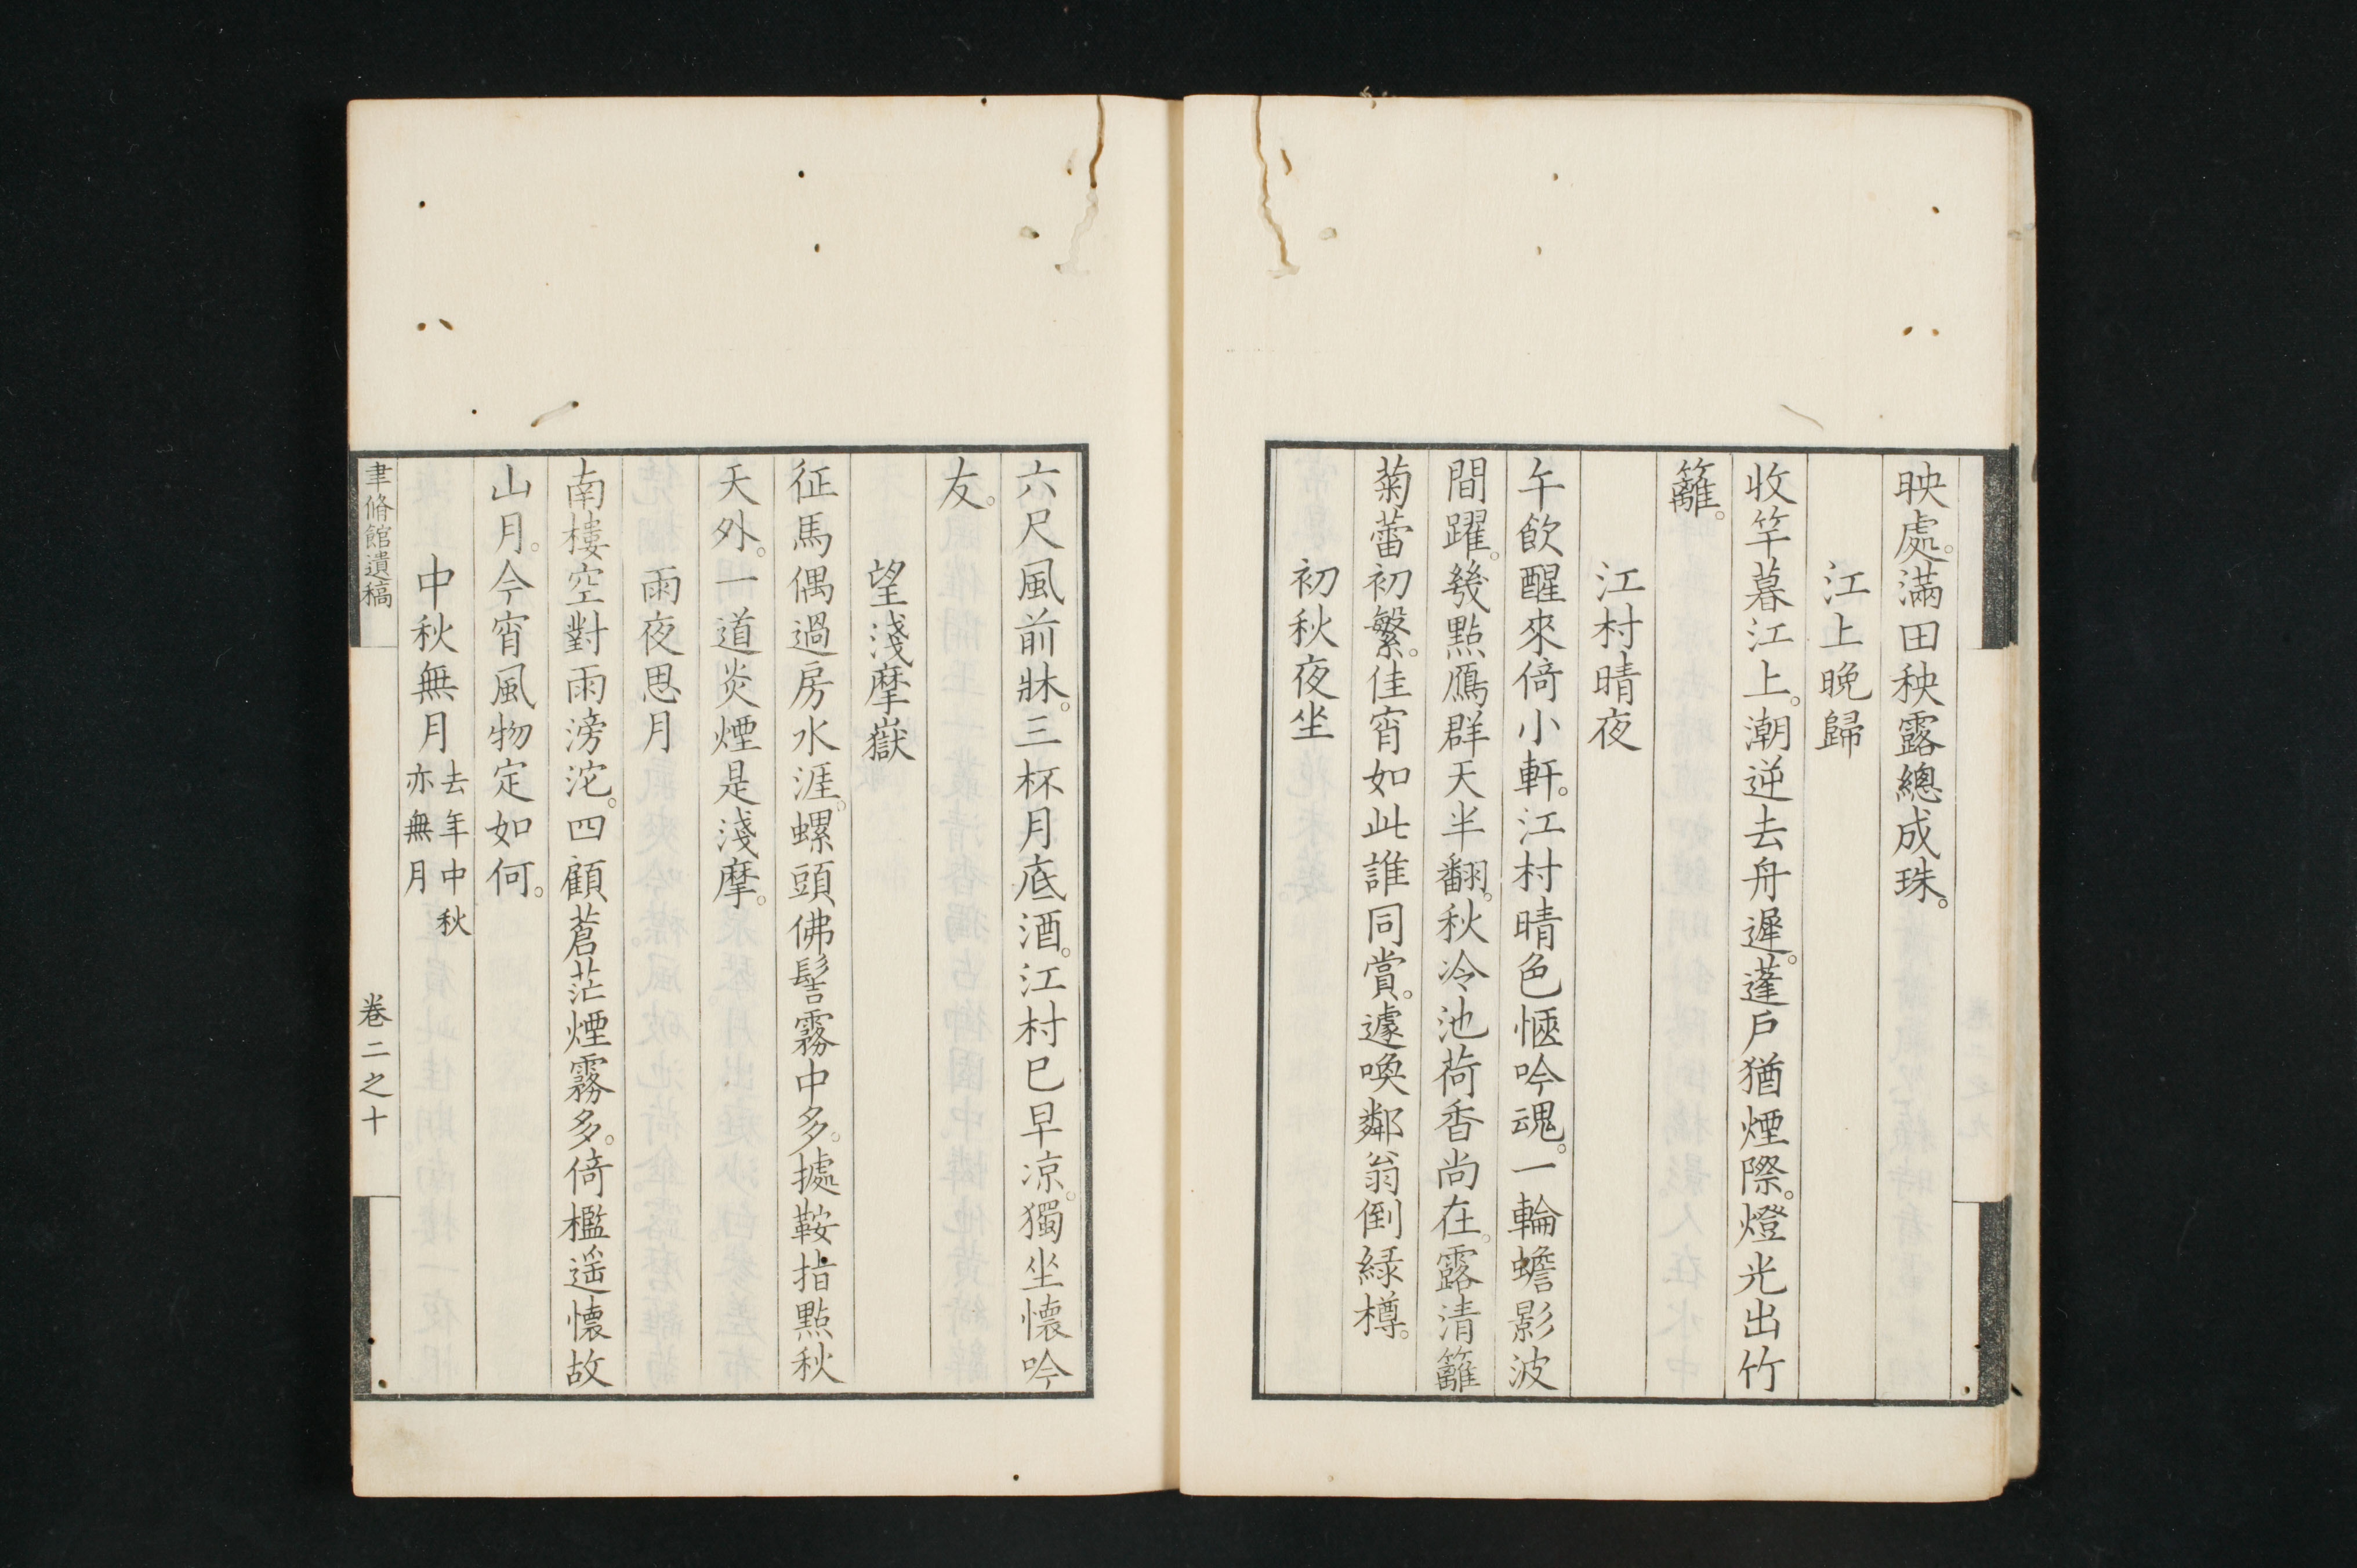 映處。滿田秧露總成珠。
江上晩歸
收竿暮江上。潮逆去舟遲。蓬戶猶煙際。燈光出竹
籬。
江村晴夜
午飲醒來倚小軒。江村晴色愜吟魂。一輪蟾影波
間躍。幾點鴈群天半翻。秋冷池荷香尚在。露清籬
菊蕾初繁。佳宵如此誰同賞。遽喚鄰翁倒綠樽。
初秋夜坐
六尺風前牀。三杯月底酒。江村已早凉。獨坐懷吟
友。
望淺摩嶽
征馬偶過房水涯。螺頭佛髻霧中多。據鞍指點秋
天外。一道炎煙是淺摩。
雨夜思月
南樓空對雨滂沱。四顧蒼茫煙霧多。倚檻遥懷故
山月。今宵風物定如何。
中秋無月 去年中秋
亦無月
聿脩館遺稿 卷二之十